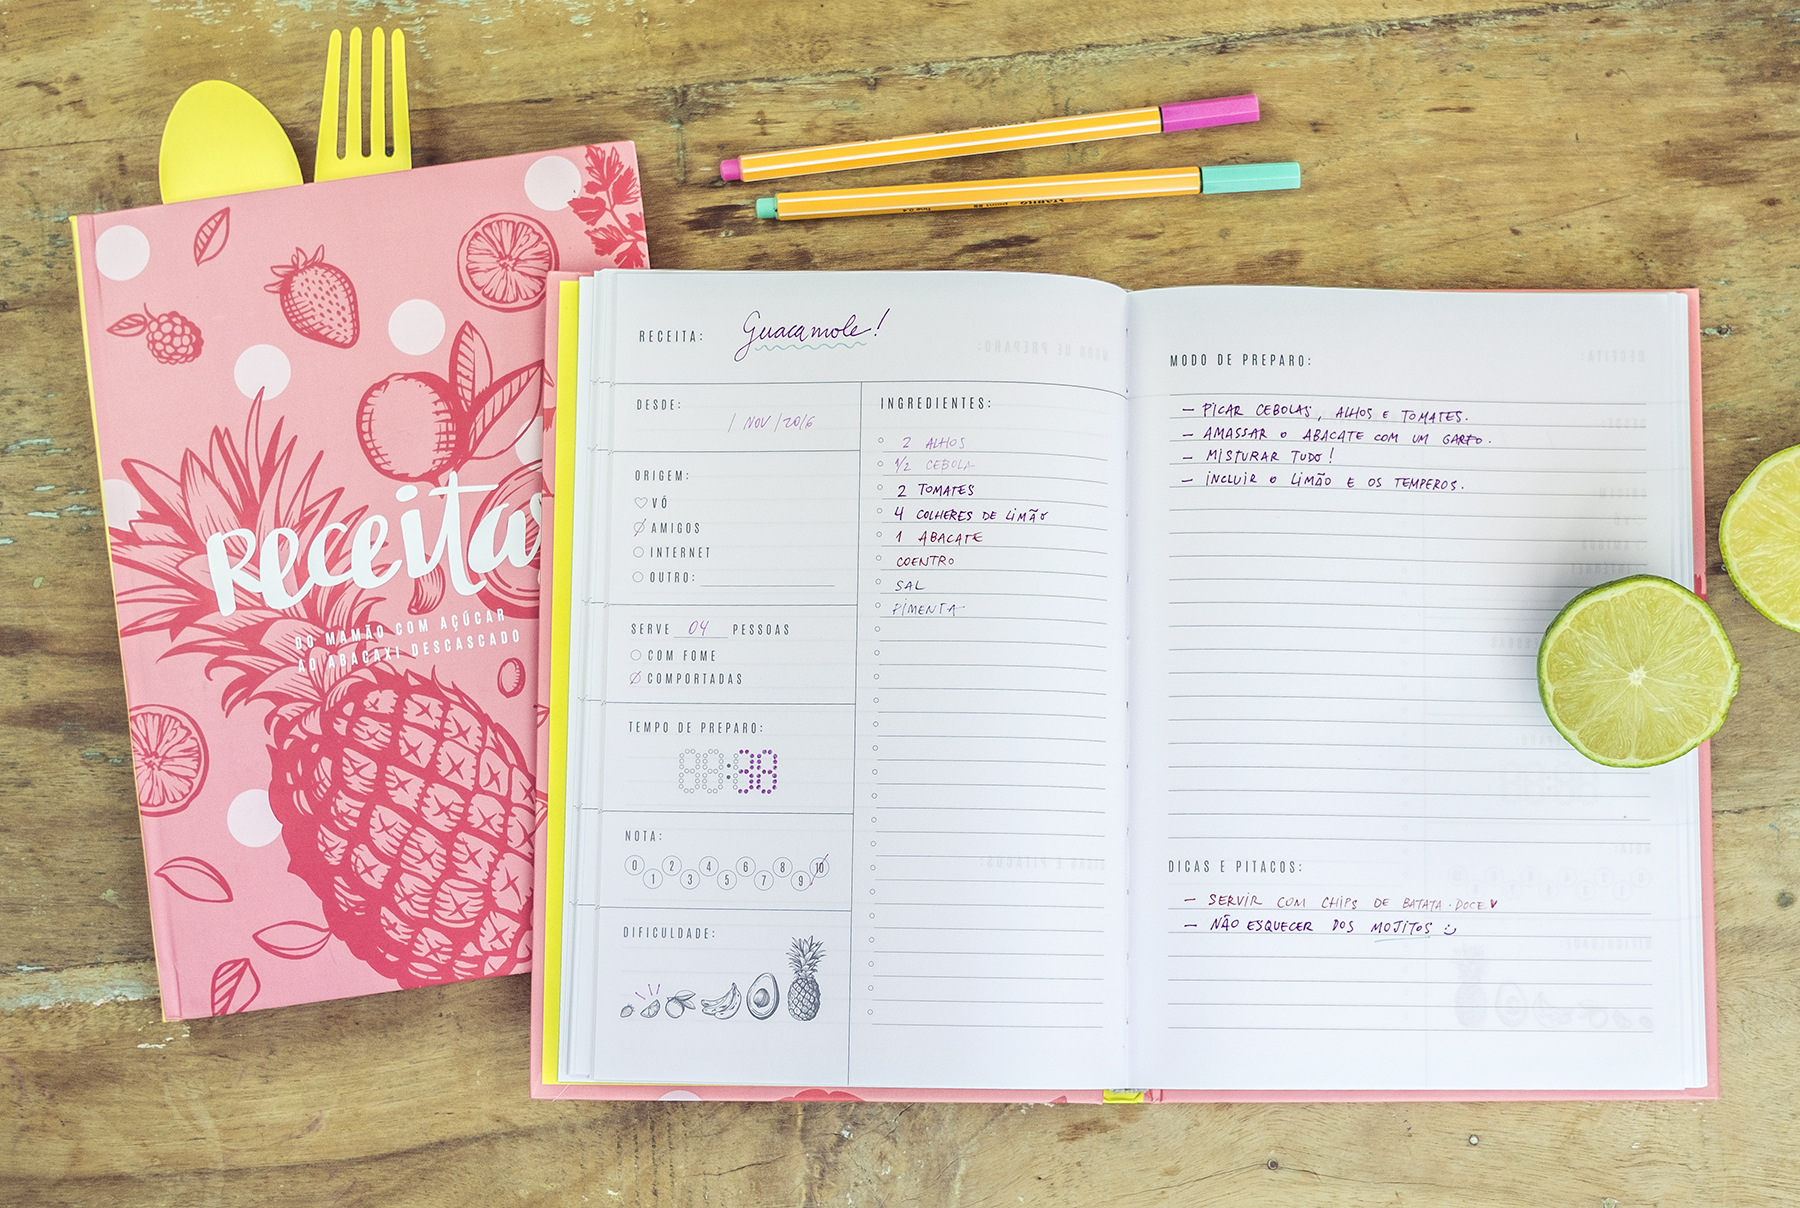 Receitas
DO MAMÃO COM AÇÚCAR
AO ABACAXI DESCASCADO
STABILO point 88
RECEITA: Guacamole!
DESDE:
1 / NOV / 2016
ORIGEM:
VÓ
AMIGOS
INTERNET
OUTRO:
SERVE 04 PESSOAS
COM FOME
COMPORTADAS
TEMPO DE PREPARO:
:38
NOTA:
0 1 2 3 4 5 6 7 8 9 10
DIFICULDADE:
INGREDIENTES:
2 ALHOS
1/2 CEBOLA
2 TOMATES
4 COLHERES DE LIMÃO
1 ABACATE
COENTRO
SAL
PIMENTA
MODO DE PREPARO:
– PICAR CEBOLAS, ALHOS E TOMATES.
– AMASSAR O ABACATE COM UM GARFO.
– MISTURAR TUDO!
– INCLUIR O LIMÃO E OS TEMPEROS.
DICAS E PITACOS:
– SERVIR COM CHIPS DE BATATA-DOCE ♥
– NÃO ESQUECER DOS MOJITOS :)